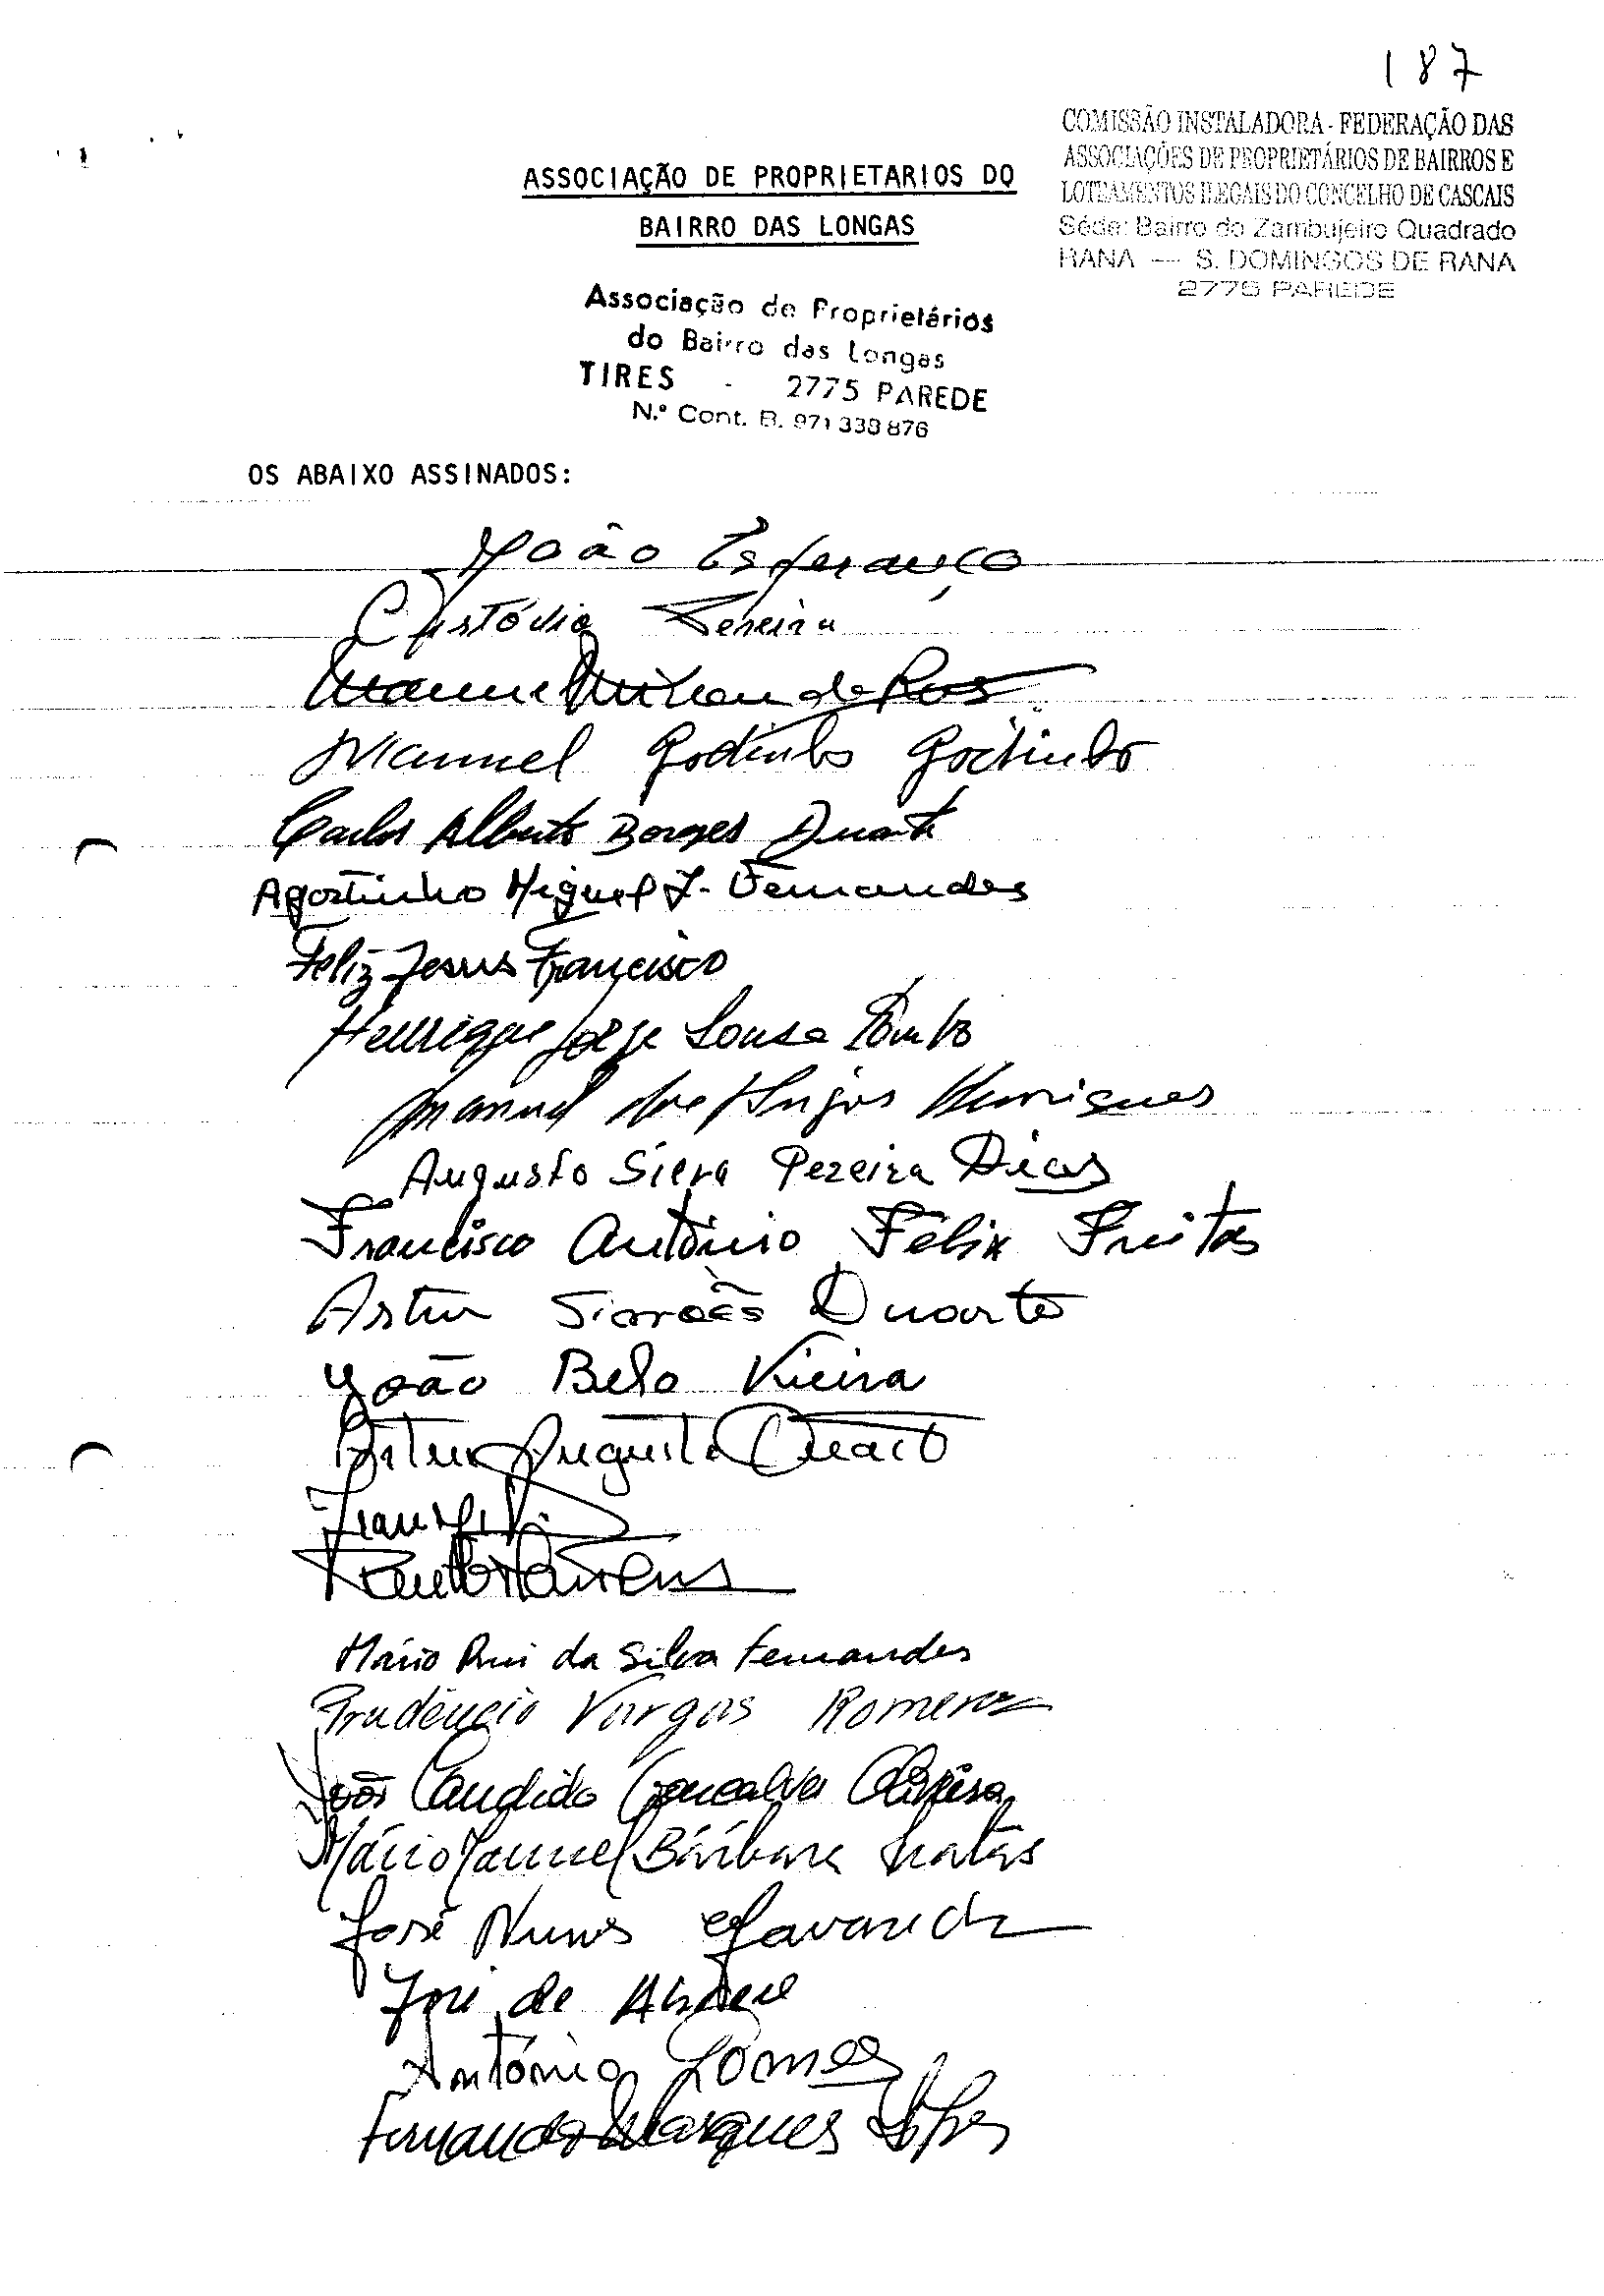 187
COMISSÃO INSTALADORA - FEDERAÇÃO DAS
ASSOCIAÇÕES DE PROPRIETÁRIOS DE BAIRROS E
LOTEAMENTOS ILEGAIS DO CONCELHO DE CASCAIS
Séde: Bairro do Zambujeiro Quadrado
RANA — S. DOMINGOS DE RANA
2775 PAREDE
ASSOCIAÇÃO DE PROPRIETARIOS DO
BAIRRO DAS LONGAS
Associação de Proprietários
do Bairro das Longas
TIRES - 2775 PAREDE
N.º Cont. B. 971 338 876
OS ABAIXO ASSINADOS:
João Esperanço
Custódio Pereira
Manuel
Manuel Godinho Godinho
Carlos Alberto Borges Duarte
Agostinho Miguel J. Fernandes
Feliz Jesus Francisco
Henrique Jorge Sousa Pombo
Manuel dos Anjos Henriques
Augusto Silva Pereira Dias
Francisco António Félix Freitas
Artur Simões Duarte
João Belo Vieira
Artur Augusto Duarte
Mário Rui da Silva Fernandes
Prudêncio Vargas Romero
João Candido Gonçalves
Mário Manuel Bárbara
José Nunes
José de Abreu
António Gomes
Fernando Marques Lopes